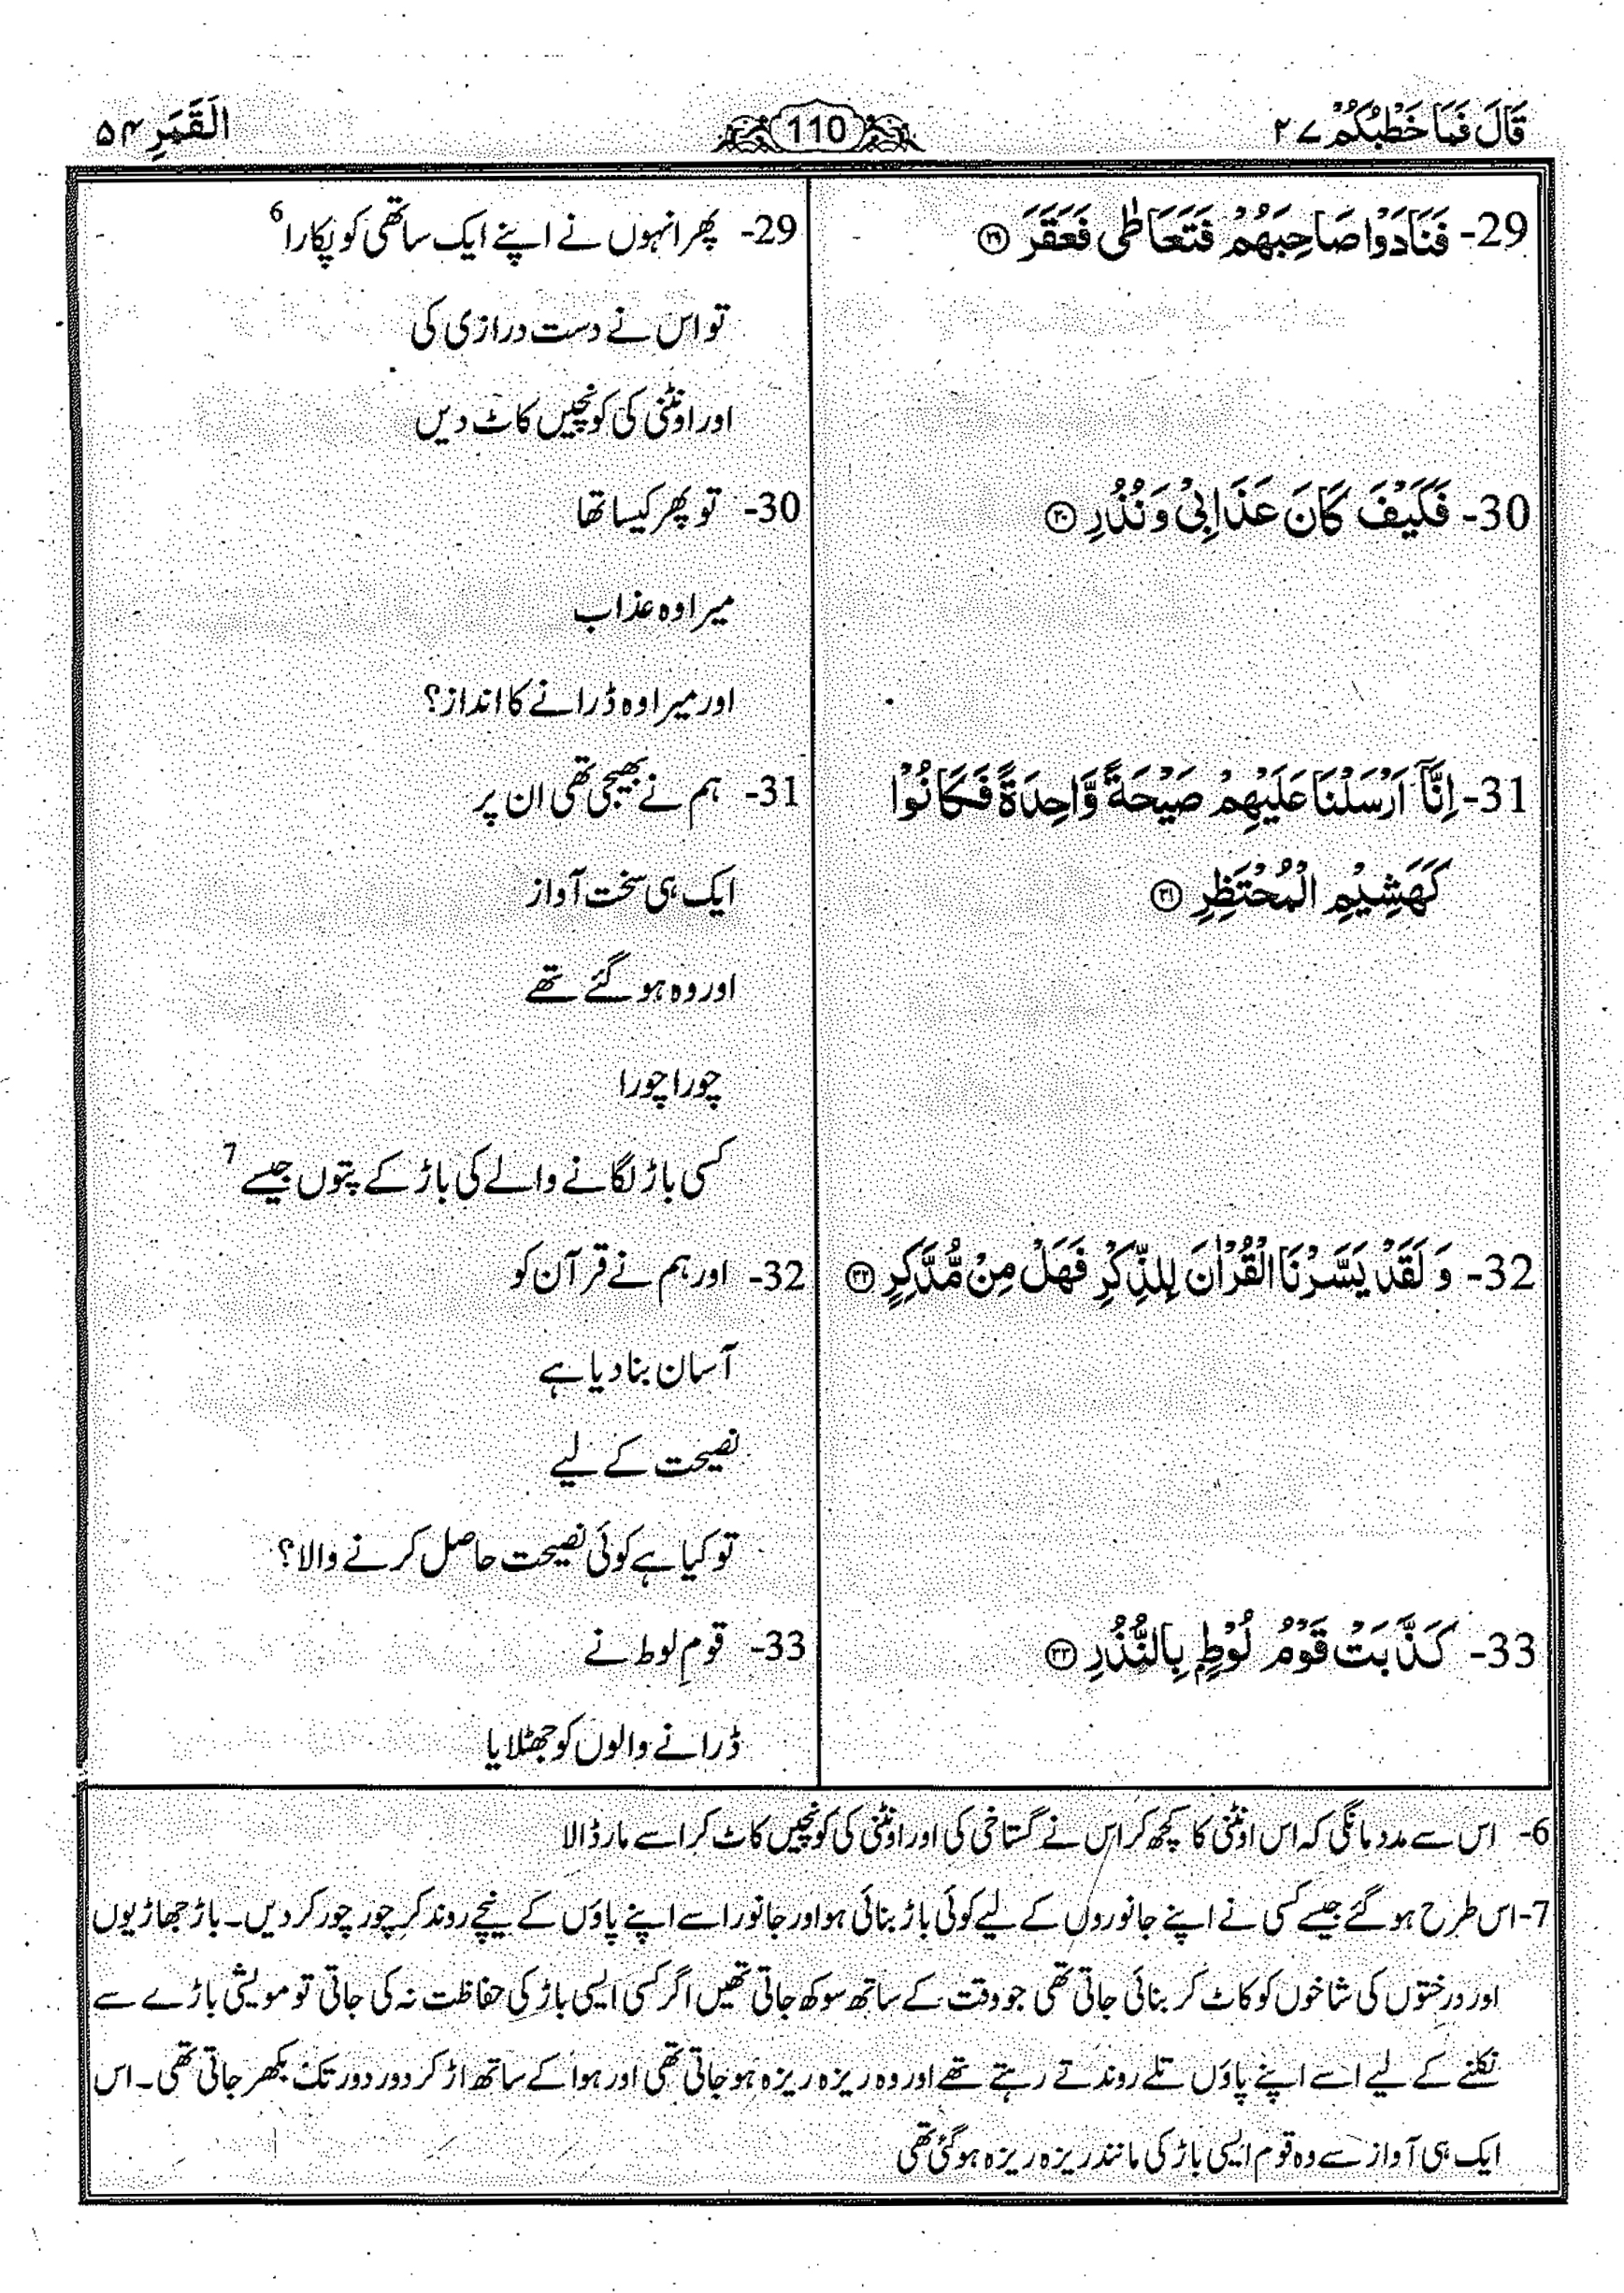 قَالَ فَمَا خَطْبُكُمْ ٢٧
110
اَلْقَمَرِ ٥٤
29- فَنَادَوْا صَاحِبَهُمْ فَتَعَاطٰى فَعَقَرَ ﴿٢٩﴾
30- فَكَيْفَ كَانَ عَذَابِىْ وَ نُذُرِ ﴿٣٠﴾
31- اِنَّاۤ اَرْسَلْنَا عَلَيْهِمْ صَيْحَةً وَّاحِدَةً فَكَانُوْا
كَهَشِيْمِ الْمُحْتَظِرِ ﴿٣١﴾
32- وَ لَقَدْ يَسَّرْنَا الْقُرْاٰنَ لِلذِّكْرِ فَهَلْ مِنْ مُّدَّكِرٍ ﴿٣٢﴾
33- كَذَّبَتْ قَوْمُ لُوْطٍۭ بِالنُّذُرِ ﴿٣٣﴾
29- پھر انہوں نے اپنے ایک ساتھی کو پکارا 6
تو اس نے دست درازی کی
اور اونٹنی کی کونچیں کاٹ دیں
30- تو پھر کیسا تھا
میرا وہ عذاب
اور میرا وہ ڈرانے کا انداز؟
31- ہم نے بھیجی تھی ان پر
ایک ہی سخت آواز
اور وہ ہو گئے تھے
چورا چورا
کسی باڑ لگانے والے کی باڑ کے پتوں جیسے 7
32- اور ہم نے قرآن کو
آسان بنا دیا ہے
نصیحت کے لیے
تو کیا ہے کوئی نصیحت حاصل کرنے والا؟
33- قومِ لوط نے
ڈرانے والوں کو جھٹلایا
6- اس سے مدد مانگی کہ اس اونٹنی کا کچھ کر اس نے گستاخی کی اور اونٹنی کی کونچیں کاٹ کر اسے مار ڈالا
7- اس طرح ہو گئے جیسے کسی نے اپنے جانوروں کے لیے کوئی باڑ بنائی ہو اور جانور اسے اپنے پاؤں کے نیچے روند کر چور چور کر دیں۔ باڑ جھاڑیوں
اور درختوں کی شاخوں کو کاٹ کر بنائی جاتی تھی جو وقت کے ساتھ سوکھ جاتی تھیں اگر کسی ایسی باڑ کی حفاظت نہ کی جاتی تو مویشی باڑے سے
نکلنے کے لیے اسے اپنے پاؤں تلے روندتے رہتے تھے اور وہ ریزہ ریزہ ہو جاتی تھی اور ہوا کے ساتھ اڑ کر دور دور تک بکھر جاتی تھی۔ اس
ایک ہی آواز سے وہ قوم ایسی باڑ کی مانند ریزہ ریزہ ہو گئی تھی